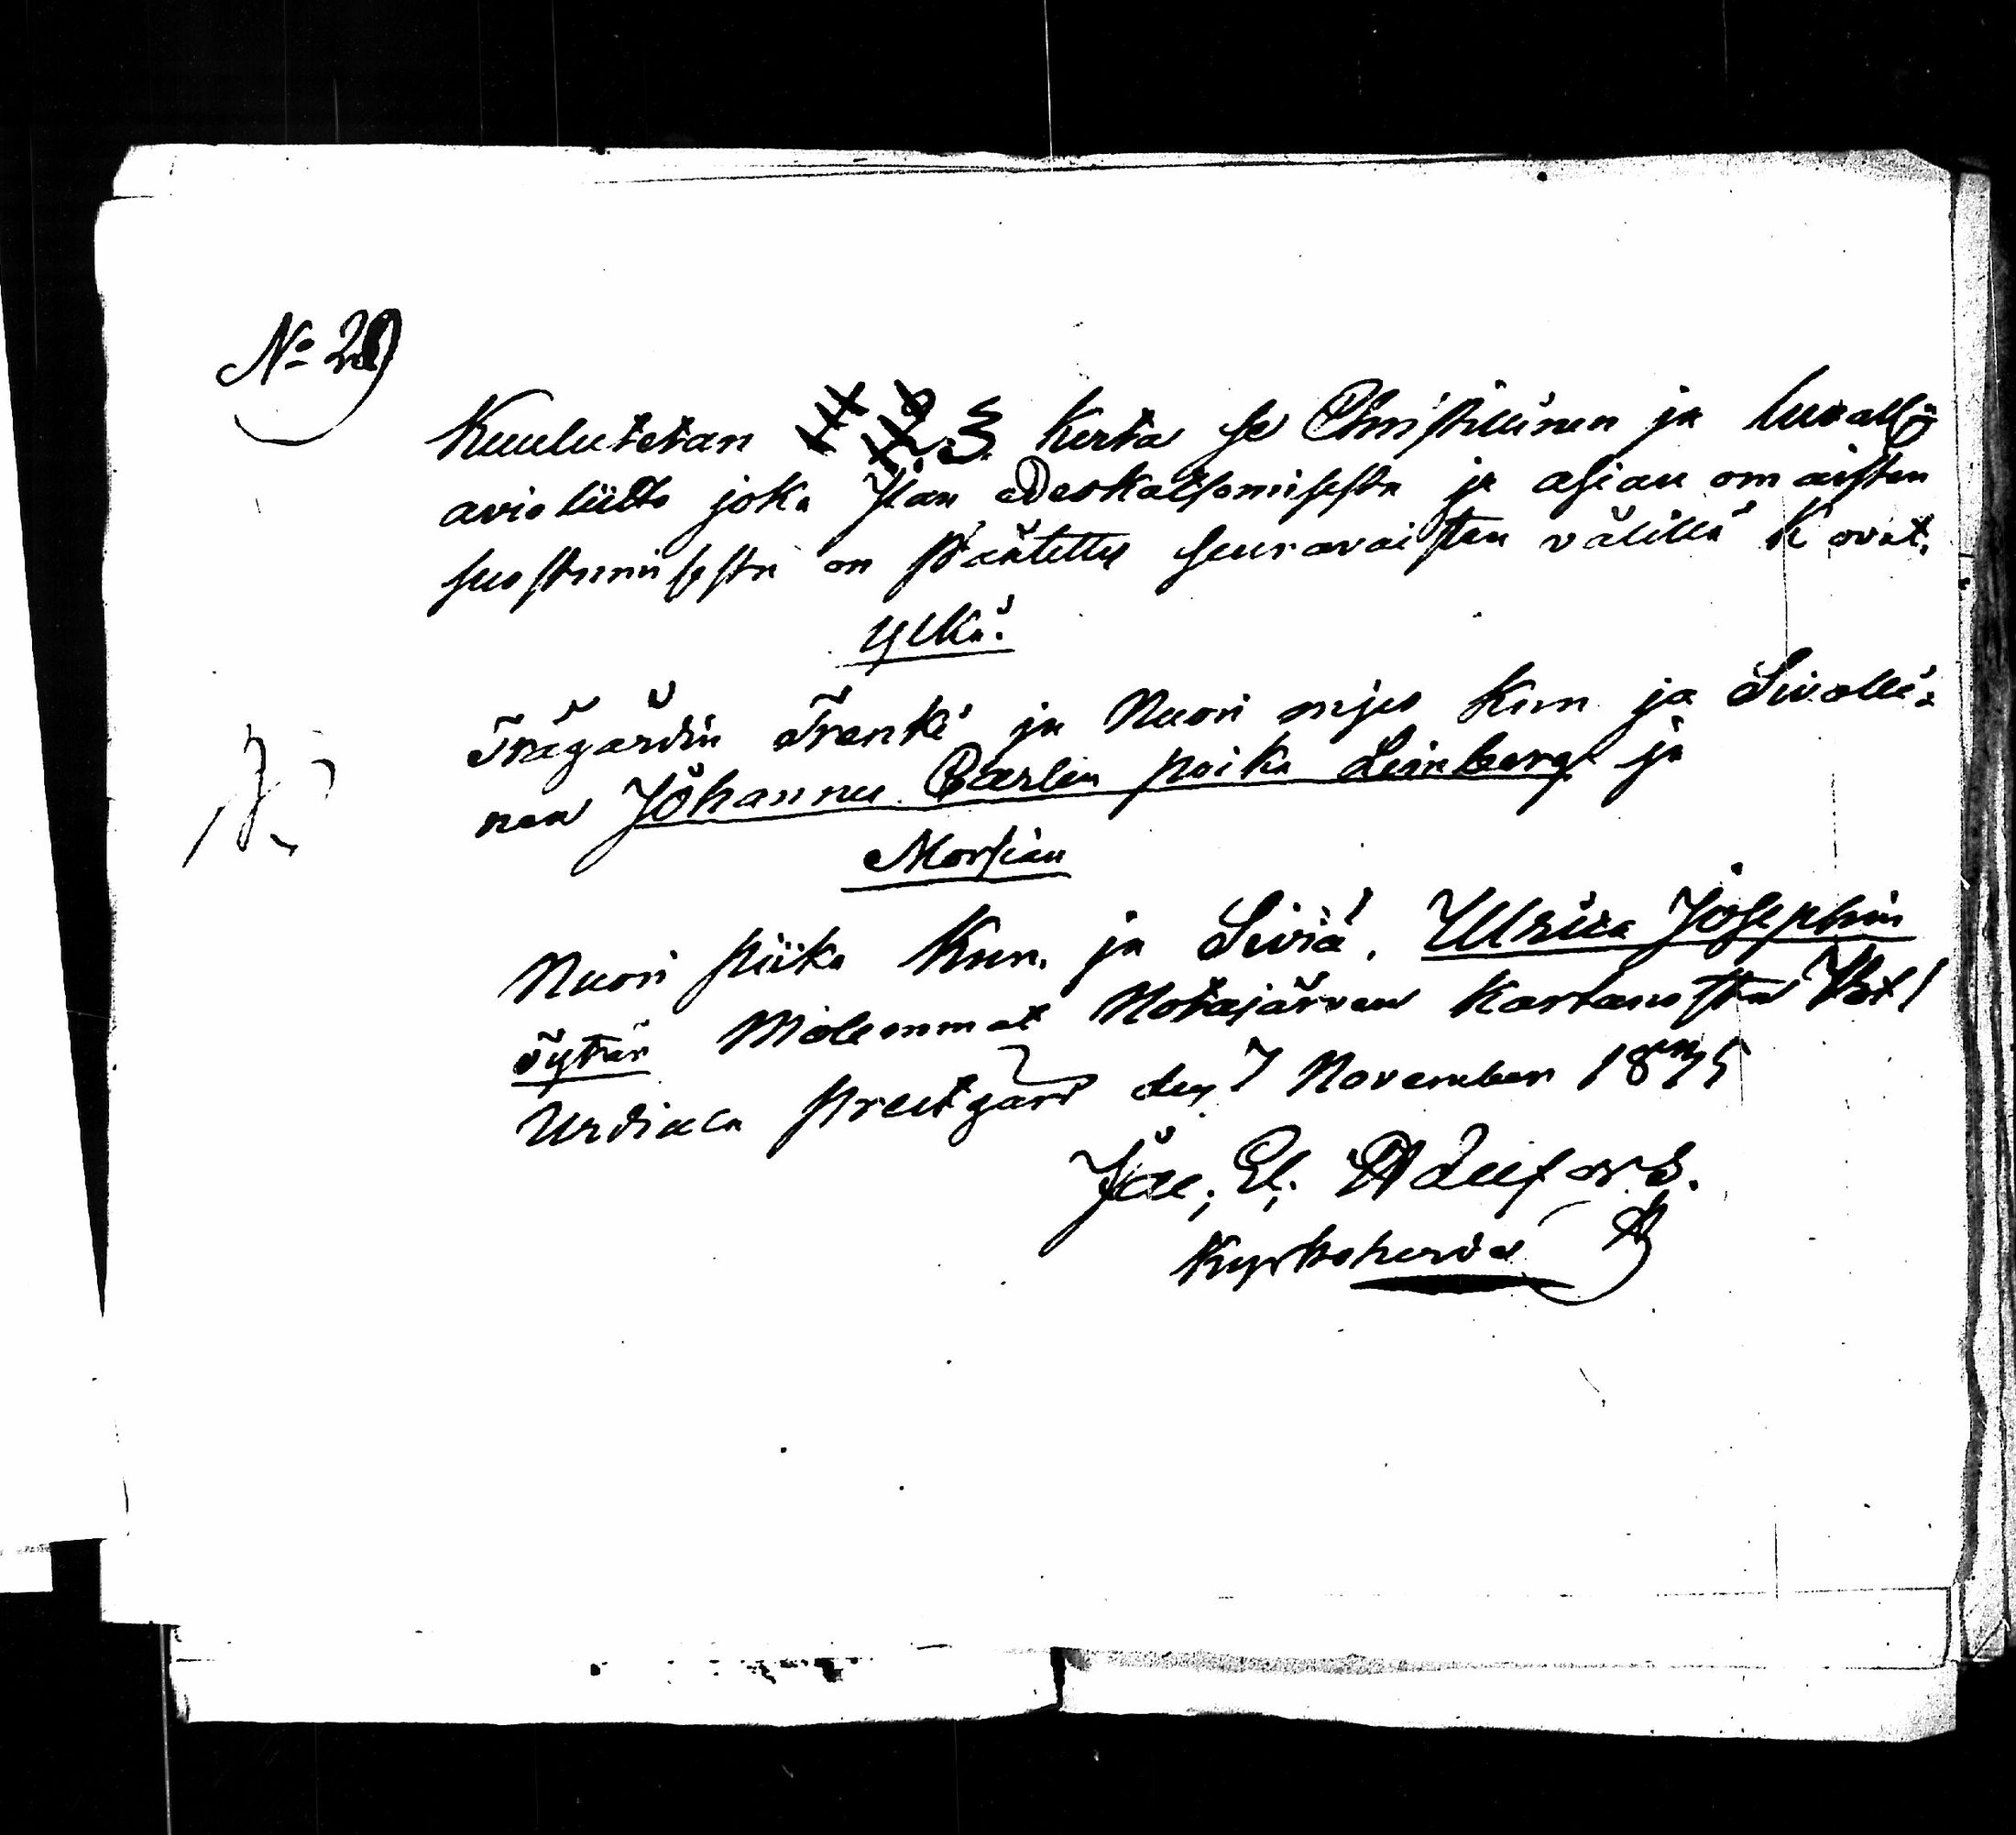 No 29
Kuulutetan 1 2 3 kerta se Christillinen ja luvalli
avioliitto joka Jlan Edeskatsomisesta ja asian omaisten
suostumisesta on Päätetty seuravaisten välillä K ovat.
ylkä.
Trägårdin Trenki ja Nuori mjes Kun ja Sivelli=
nen Johannes Carlen poika Leinberg ja
Morsian
Nuori piika Kun. ja Siviä. Ulrica Josephin
Tytär Molemmat Notajärven Kartanosta
Urdiala prestgård den 7 November 1875
Jac; El; Adelfors.
Kyrkoherde